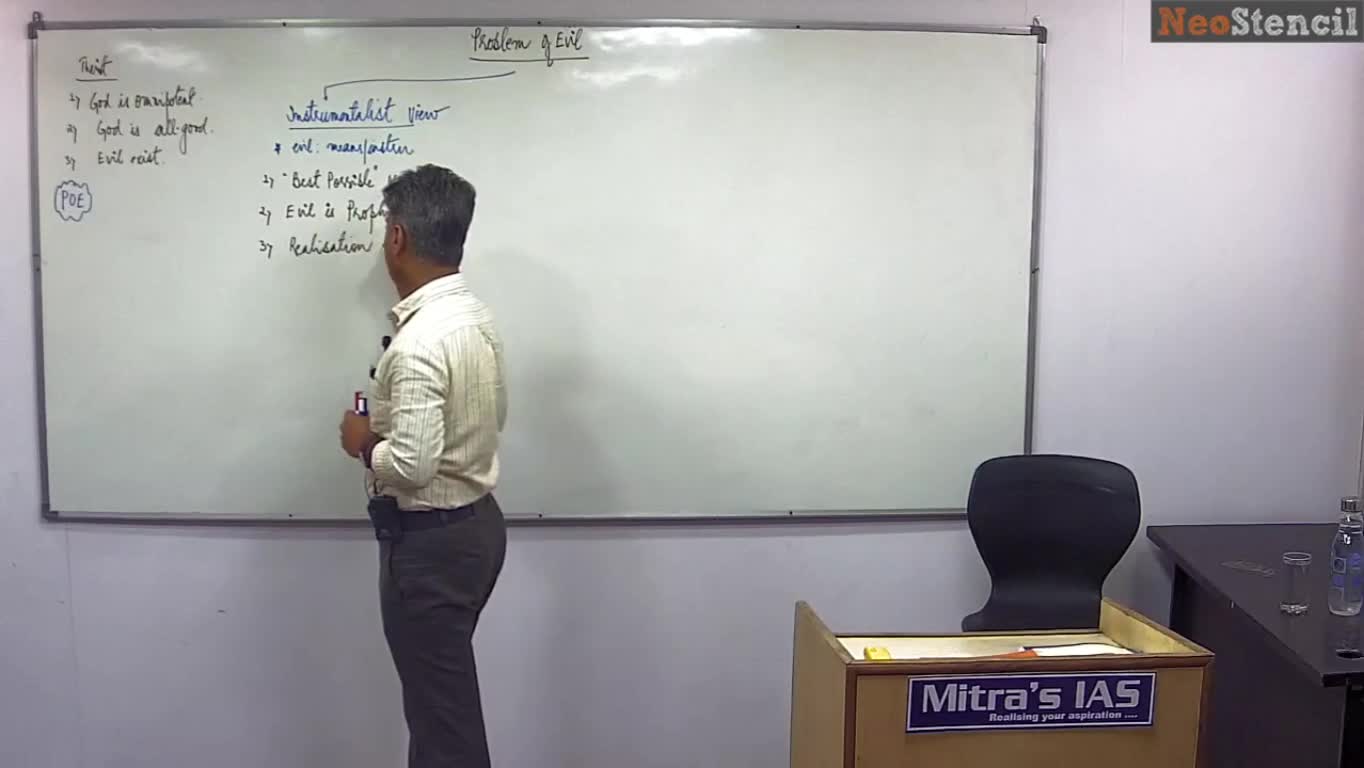 NeoStencil
Problem of Evil
Theist
1) God is omnipotent.
2) God is all-good.
3) Evil exist.
POE
Instrumentalist View
* evil: means/instru
1) "Best Possible"
2) Evil is Proph
3) Realisation
Mitra's IAS
Realising your aspiration ....